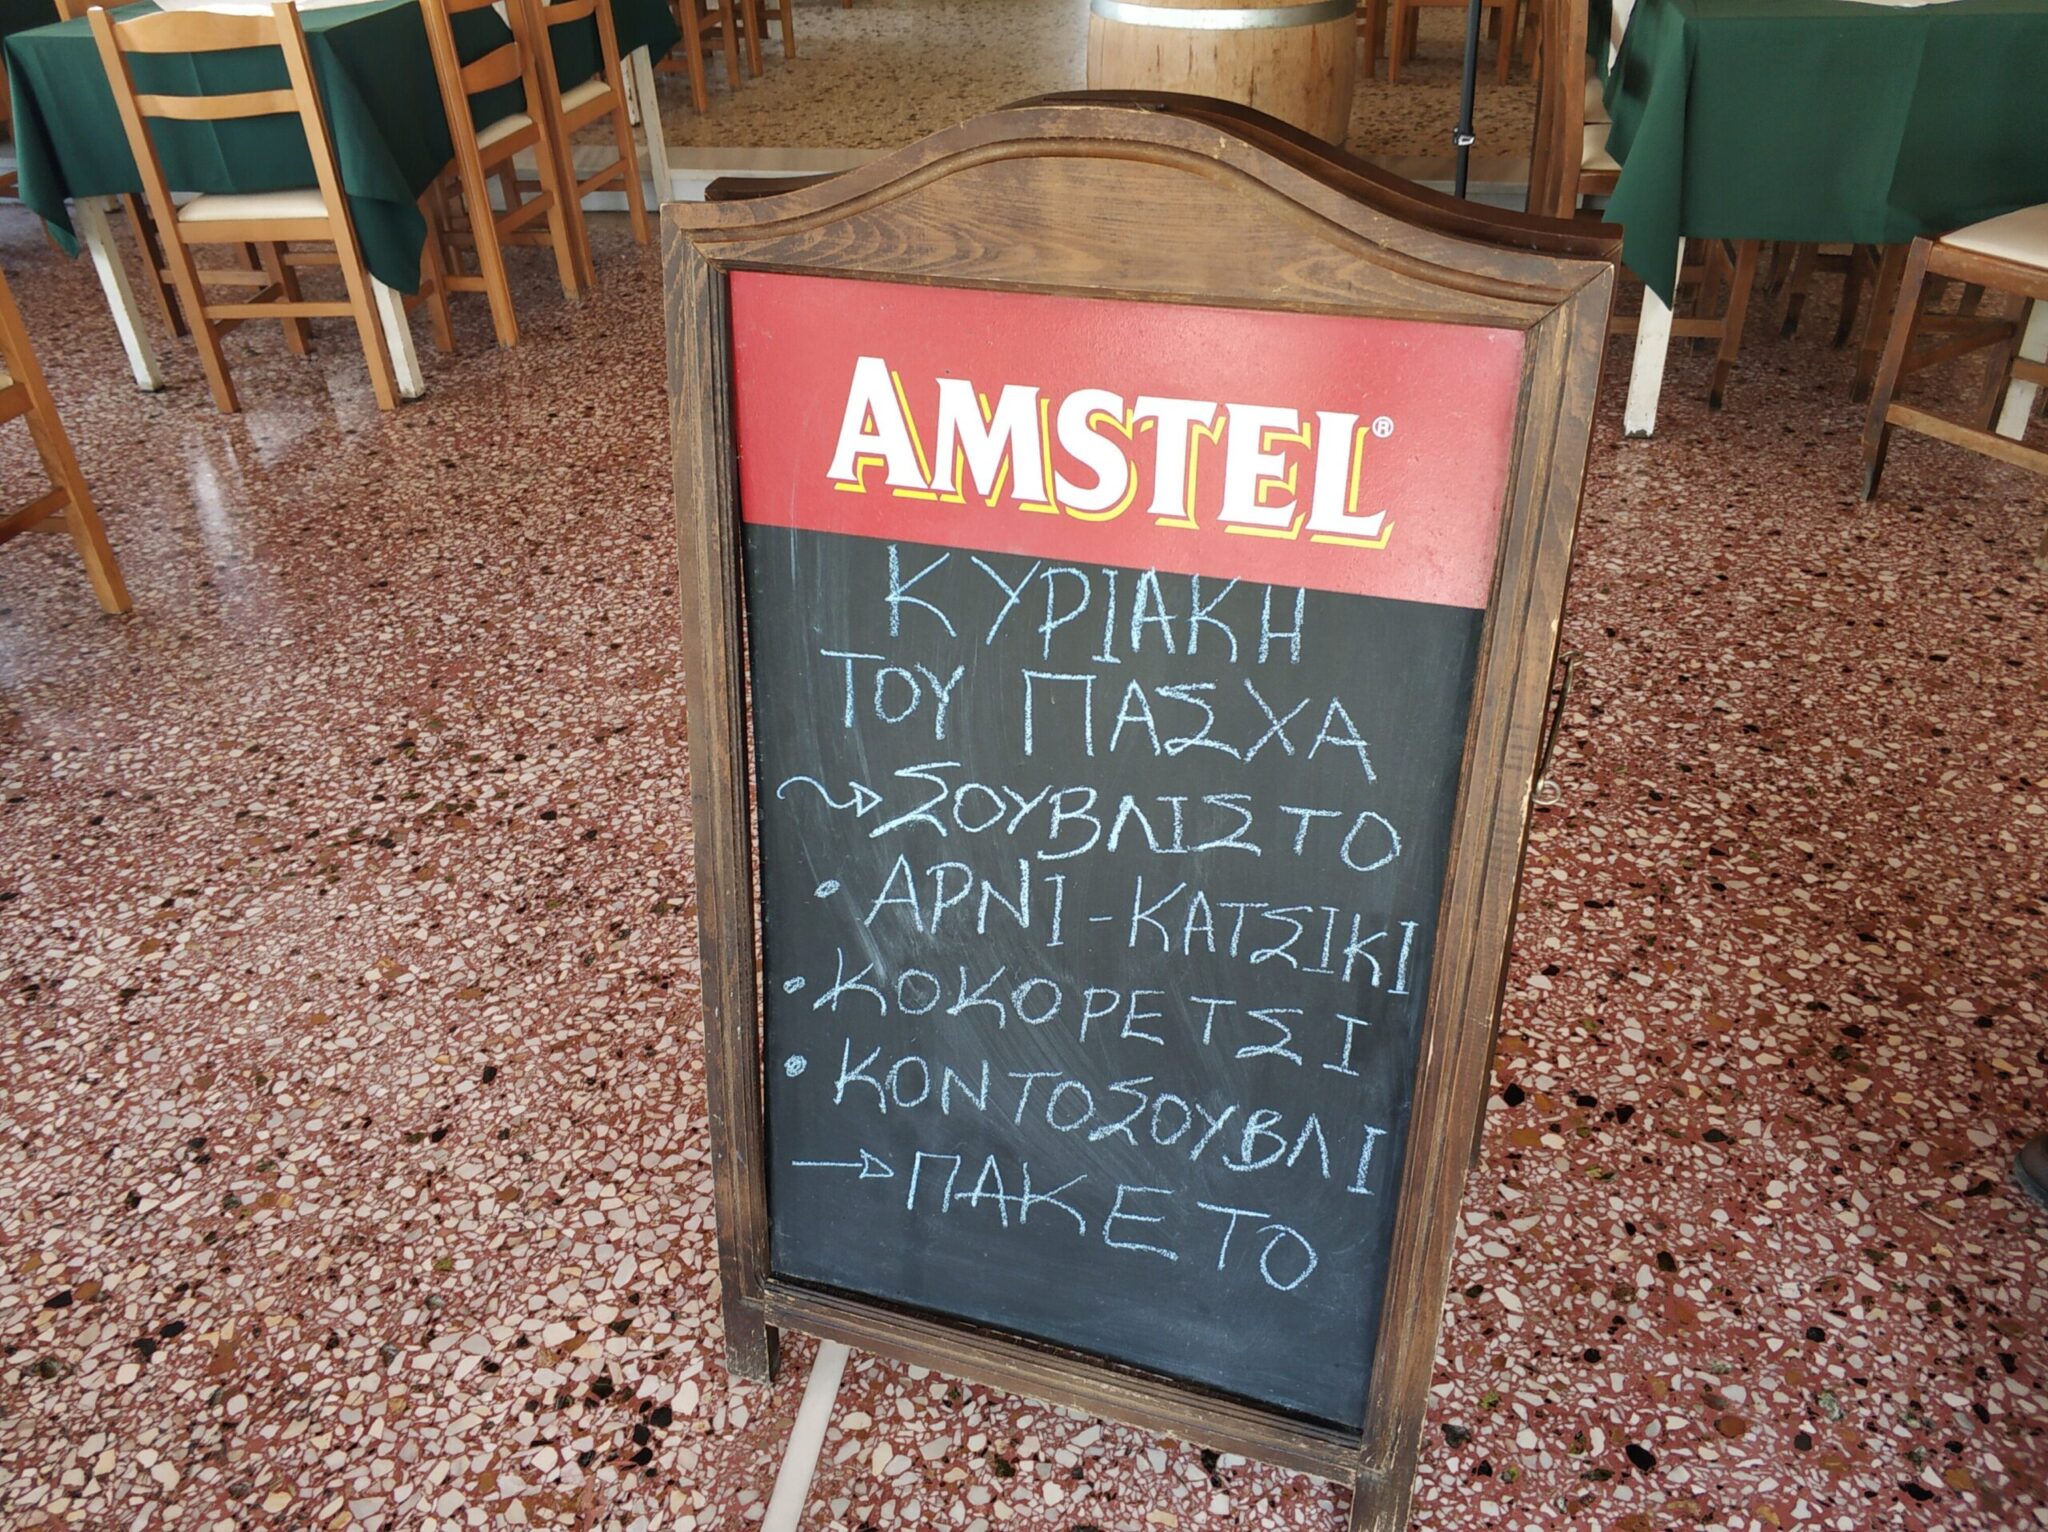 AMSTEL®
ΚΥΡΙΑΚΗ
ΤΟΥ ΠΑΣΧΑ
ΣΟΥΒΛΙΣΤΟ
• ΑΡΝΙ - ΚΑΤΣΙΚΙ
• ΚΟΚΟΡΕΤΣΙ
• ΚΟΝΤΟΣΟΥΒΛΙ
→ ΠΑΚΕΤΟ